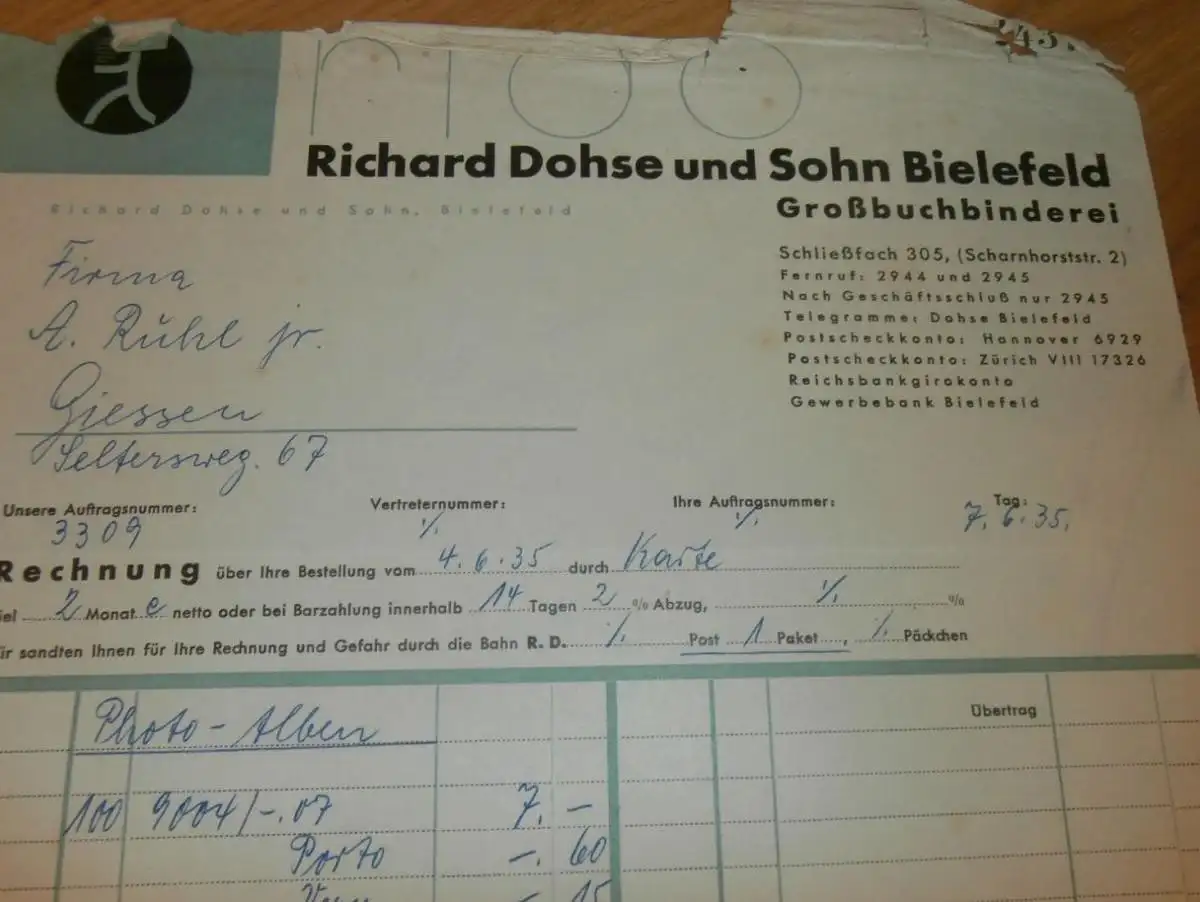 Richard Dohse und Sohn Bielefeld
Großbuchbinderei
Richard Dohse und Sohn, Bielefeld
Schließfach 305, (Scharnhorststr. 2)
Fernruf: 2944 und 2945
Nach Geschäftsschluß nur 2945
Telegramme: Dohse Bielefeld
Postscheckkonto: Hannover 6929
Postscheckkonto: Zürich VIII 17326
Reichsbankgirokonto
Gewerbebank Bielefeld
Firma
A. Rühl jr.
Giessen
Seltersweg. 67
Unsere Auftragsnummer: Vertreternummer: Ihre Auftragsnummer: Tag:
3309 ⁒ ⁒ 7. 6. 35.
Rechnung über Ihre Bestellung vom 4. 6. 35 durch Karte
iel 2 Monat e netto oder bei Barzahlung innerhalb 14 Tagen 2 % Abzug, ⁒ %
ir sandten Ihnen für Ihre Rechnung und Gefahr durch die Bahn R. D. ⁒ Post 1 Paket, ⁒ Päckchen
Photo-Alben Übertrag
100 9004/-.07 7. -
Porto -. 60
-. 15